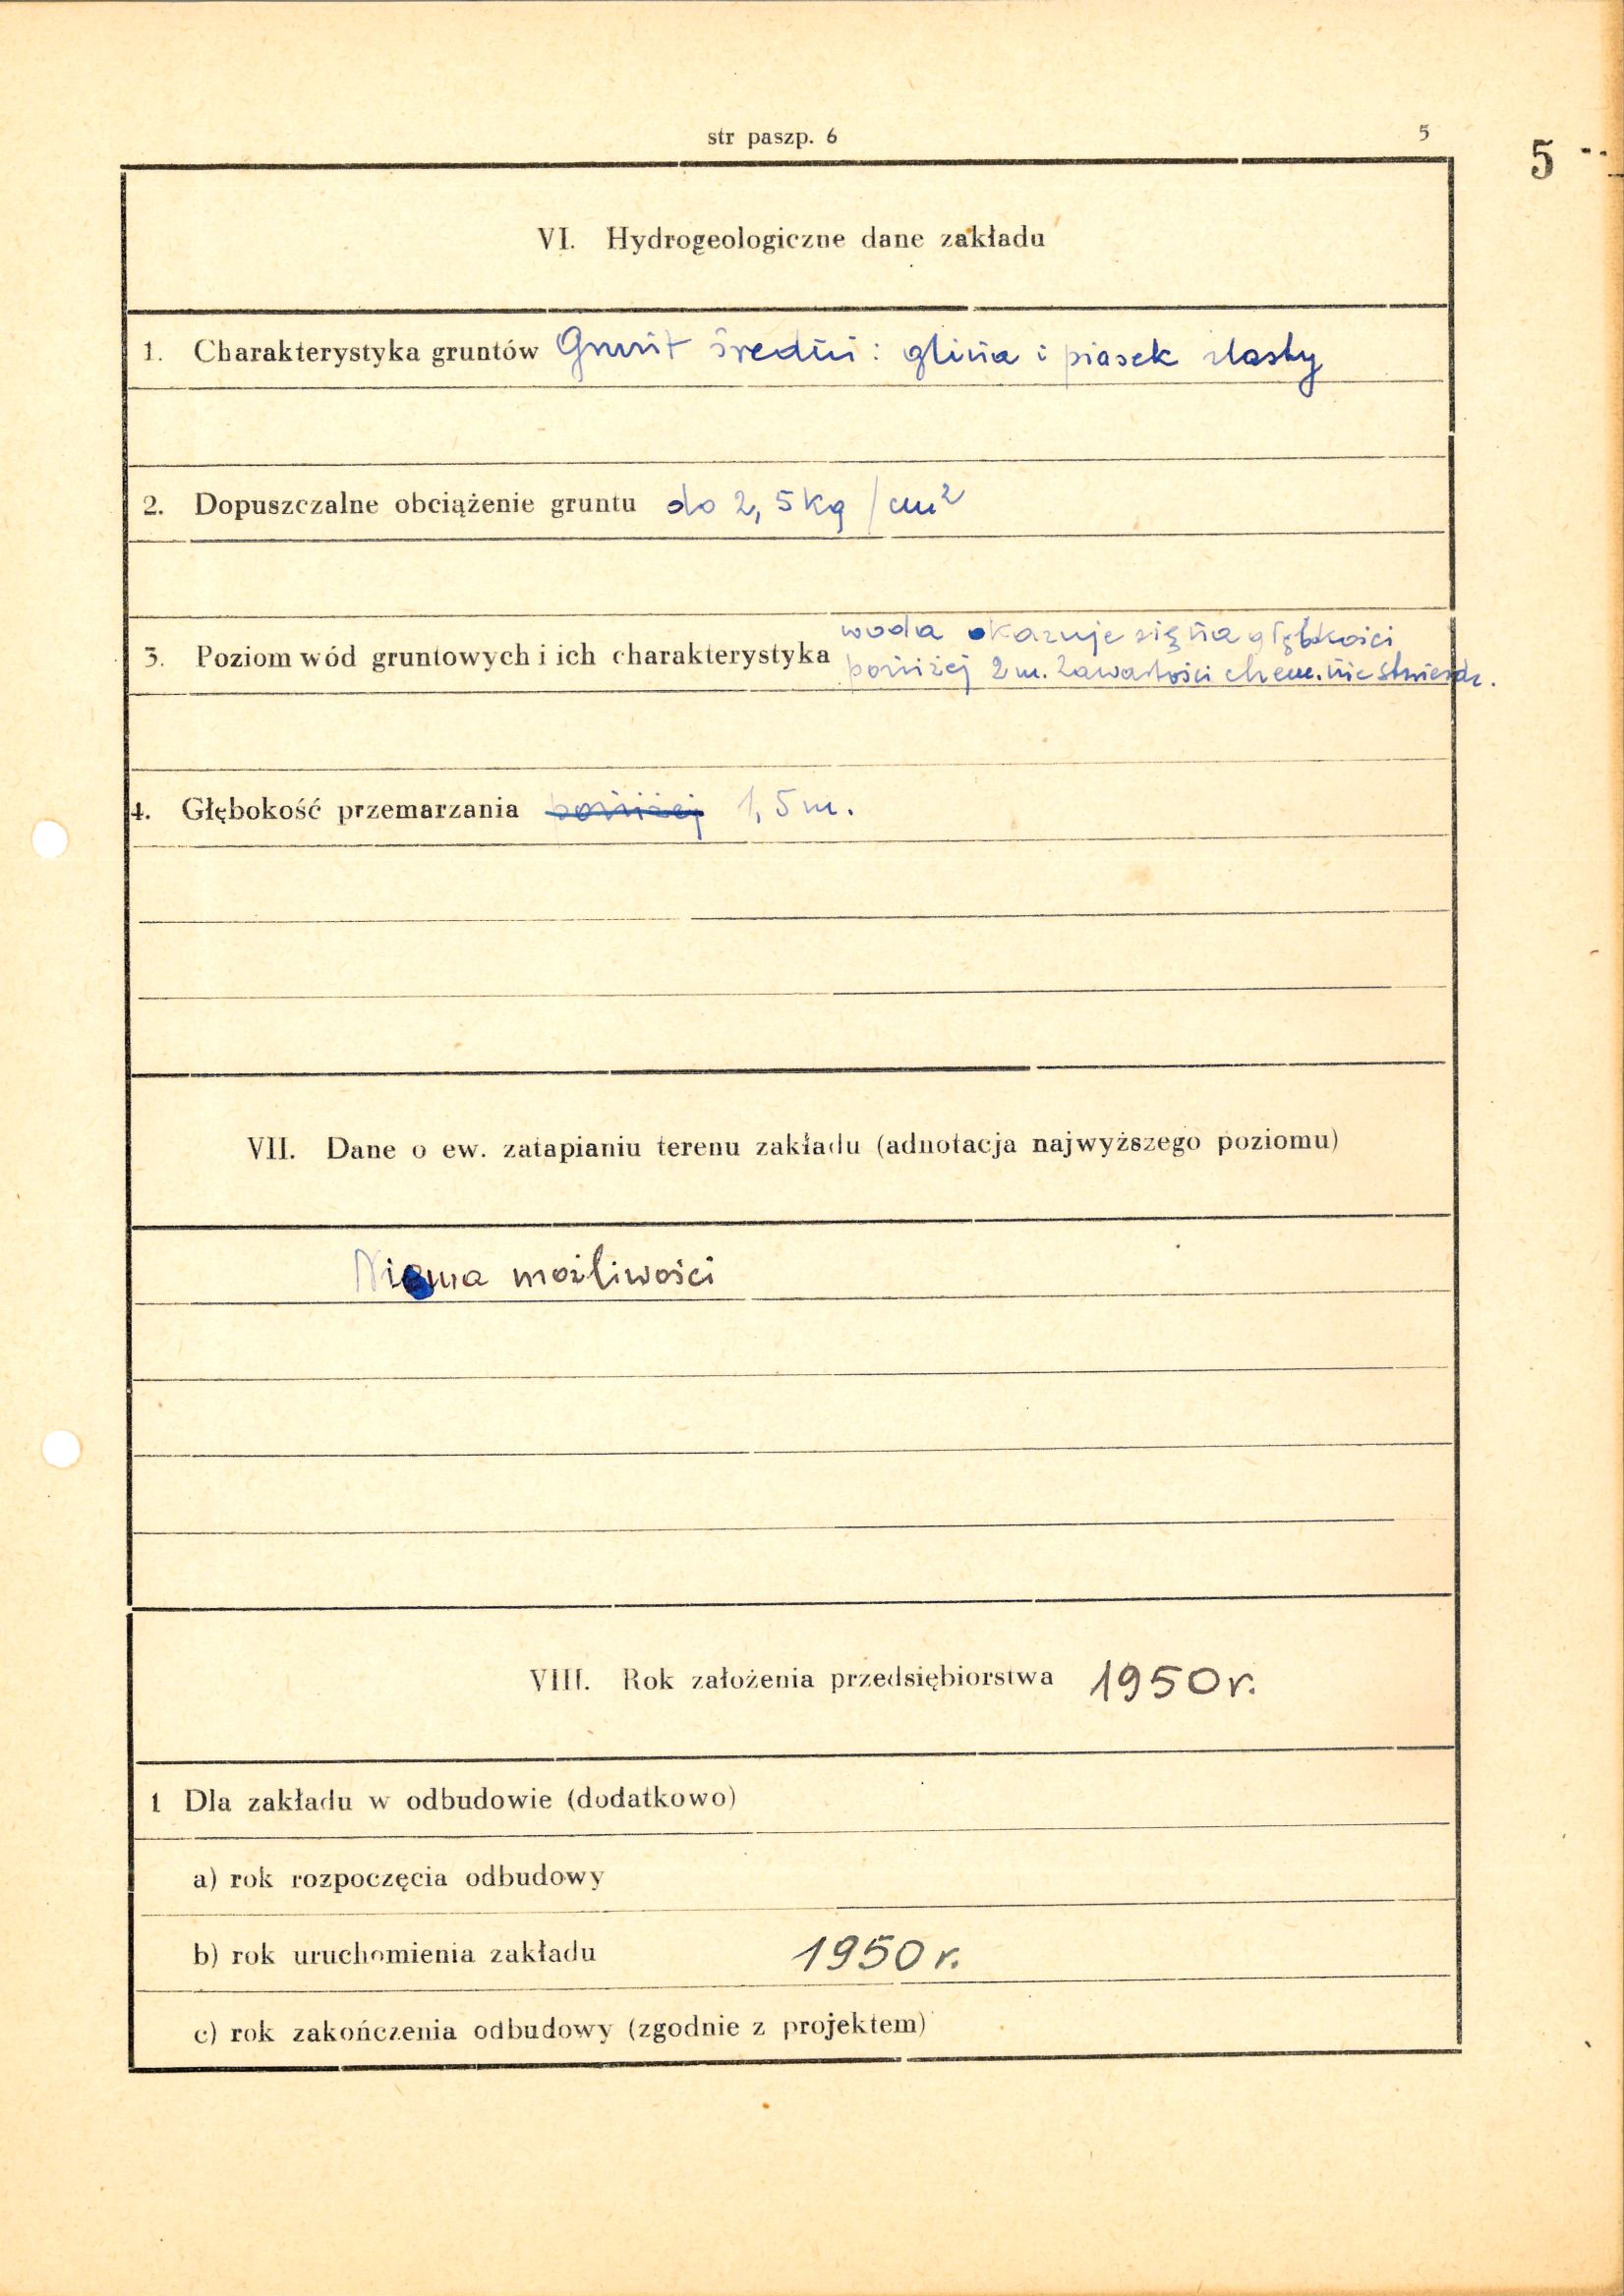 str paszp. 6
5
5
VI. Hydrogeologiczne dane zakładu
1. Charakterystyka gruntów Grunt średni: glina i piasek zlasty
2. Dopuszczalne obciążenie gruntu do 2,5 kg/cm²
woda okazuje się na głębkości
3. Poziom wód gruntowych i ich charakterystyka
poniżej 2 m. Zawartości chem. nie stwierdz.
4. Głębokość przemarzania poniżej 1,5 m.
VII. Dane o ew. zatapianiu terenu zakładu (adnotacja najwyższego poziomu)
Niema możliwości
VIII. Rok założenia przedsiębiorstwa 1950 r.
1 Dla zakładu w odbudowie (dodatkowo)
a) rok rozpoczęcia odbudowy
b) rok uruchomienia zakładu 1950 r.
c) rok zakończenia odbudowy (zgodnie z projektem)